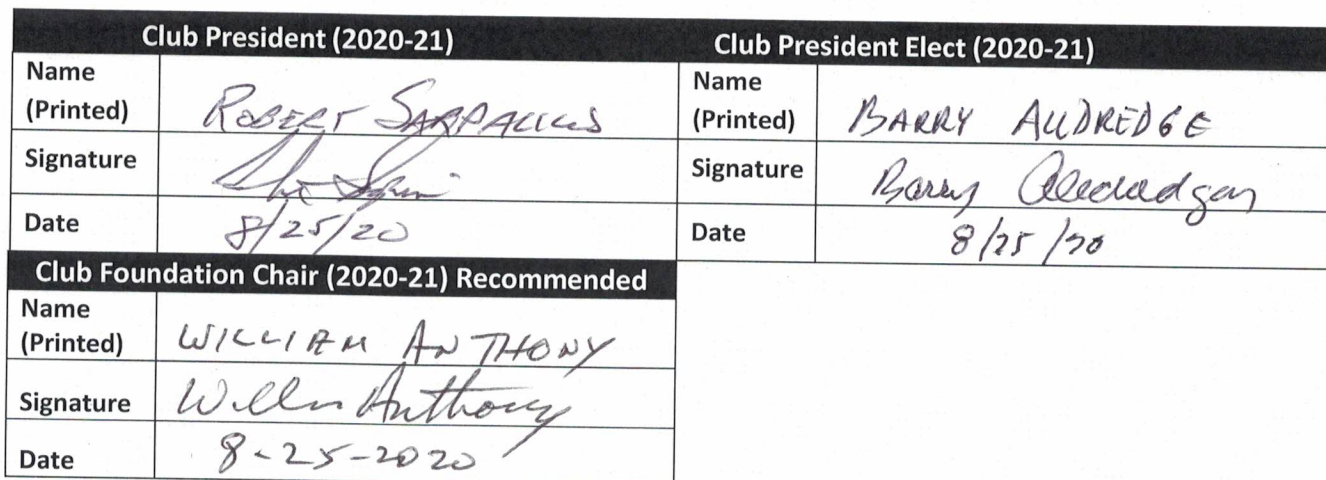 Club President (2020-21)
Name (Printed) ROBERT SARPALIUS
Signature
Date 8/25/20
Club President Elect (2020-21)
Name (Printed) BARRY ALLDREDGE
Signature Barry
Date 8/25/20
Club Foundation Chair (2020-21) Recommended
Name (Printed) WILLIAM ANTHONY
Signature Anthony
Date 8-25-2020